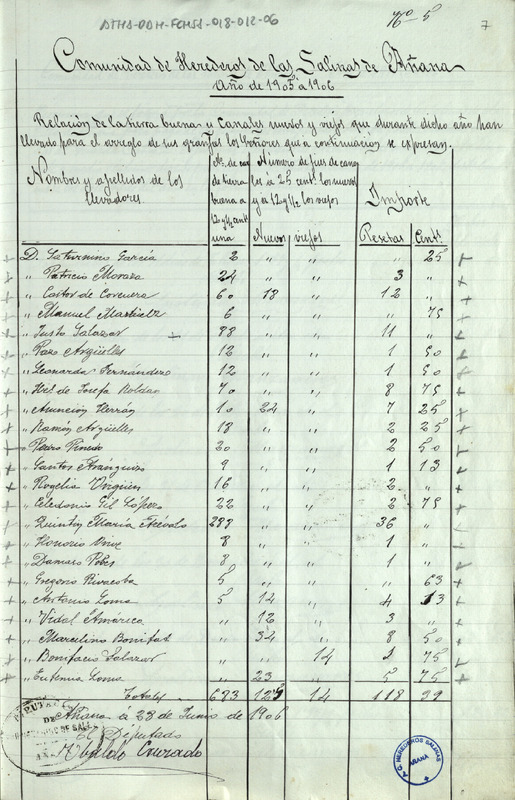 ATHA-DDH-FCHSS-018-012-06
Nº 5
7
Comunidad de Herederos de las Salinas de Añana
Año de 1905 á 1906
Relación de la tierra buena y Canales nuevos y viejos que durante dicho año han
llevado para el arreglo de sus granjas los Señores que a continuación se expresan.
Nombres y apellidos de los llevadores
Nº. de car de tierra buena a 12 y ½ cent una
Número de pies de canales á 25 cent. los nuevos y á 12 y ½ los viejos
Nuevos viejos
Importe
Pesetas Cents
D. Saturnino García 2 " " " 25
" Patricio Moraza 24 " " 3 "
" Castor de Corcuera 60 18 " 12 "
" Manuel Martínez 6 " " " 75
" Justo Salazar 88 " " 11 "
" Paso Argüelles 12 " " 1 50
" Leonarda Fernández 12 " " 1 50
" de Josefa Roldan 70 " " 8 75
" Asunción Herrán 10 24 " 7 25
" Ramón Argüelles 18 " " 2 25
" Pedro Pinedo 20 " " 2 50
" Santos Aránguiz 9 " " 1 13
" Rogelia 16 " " 2 "
" Celedonio Gil López 22 " " 2 75
" Quintín María Arévalo 288 " " 36 "
" Honorio 8 " " 1 "
" Damaso Pobes 8 " " 1 "
" Gregorio Rivacoba 5 " " " 63
" Antonio Loma 5 14 " 4 13
" Vidal 12 " 3 "
" Marcelino Bonifaz " 34 " 8 50
" Bonifacio Salazar " " 14 1 75
" Eutemia Loma " 23 " 5 75
Totales 683 125 14 118 39
Añana á 28 de Junio de 1906
El Diputado
Ubaldo Cruzado
A.C. HEREDEROS SALINAS
AÑANA